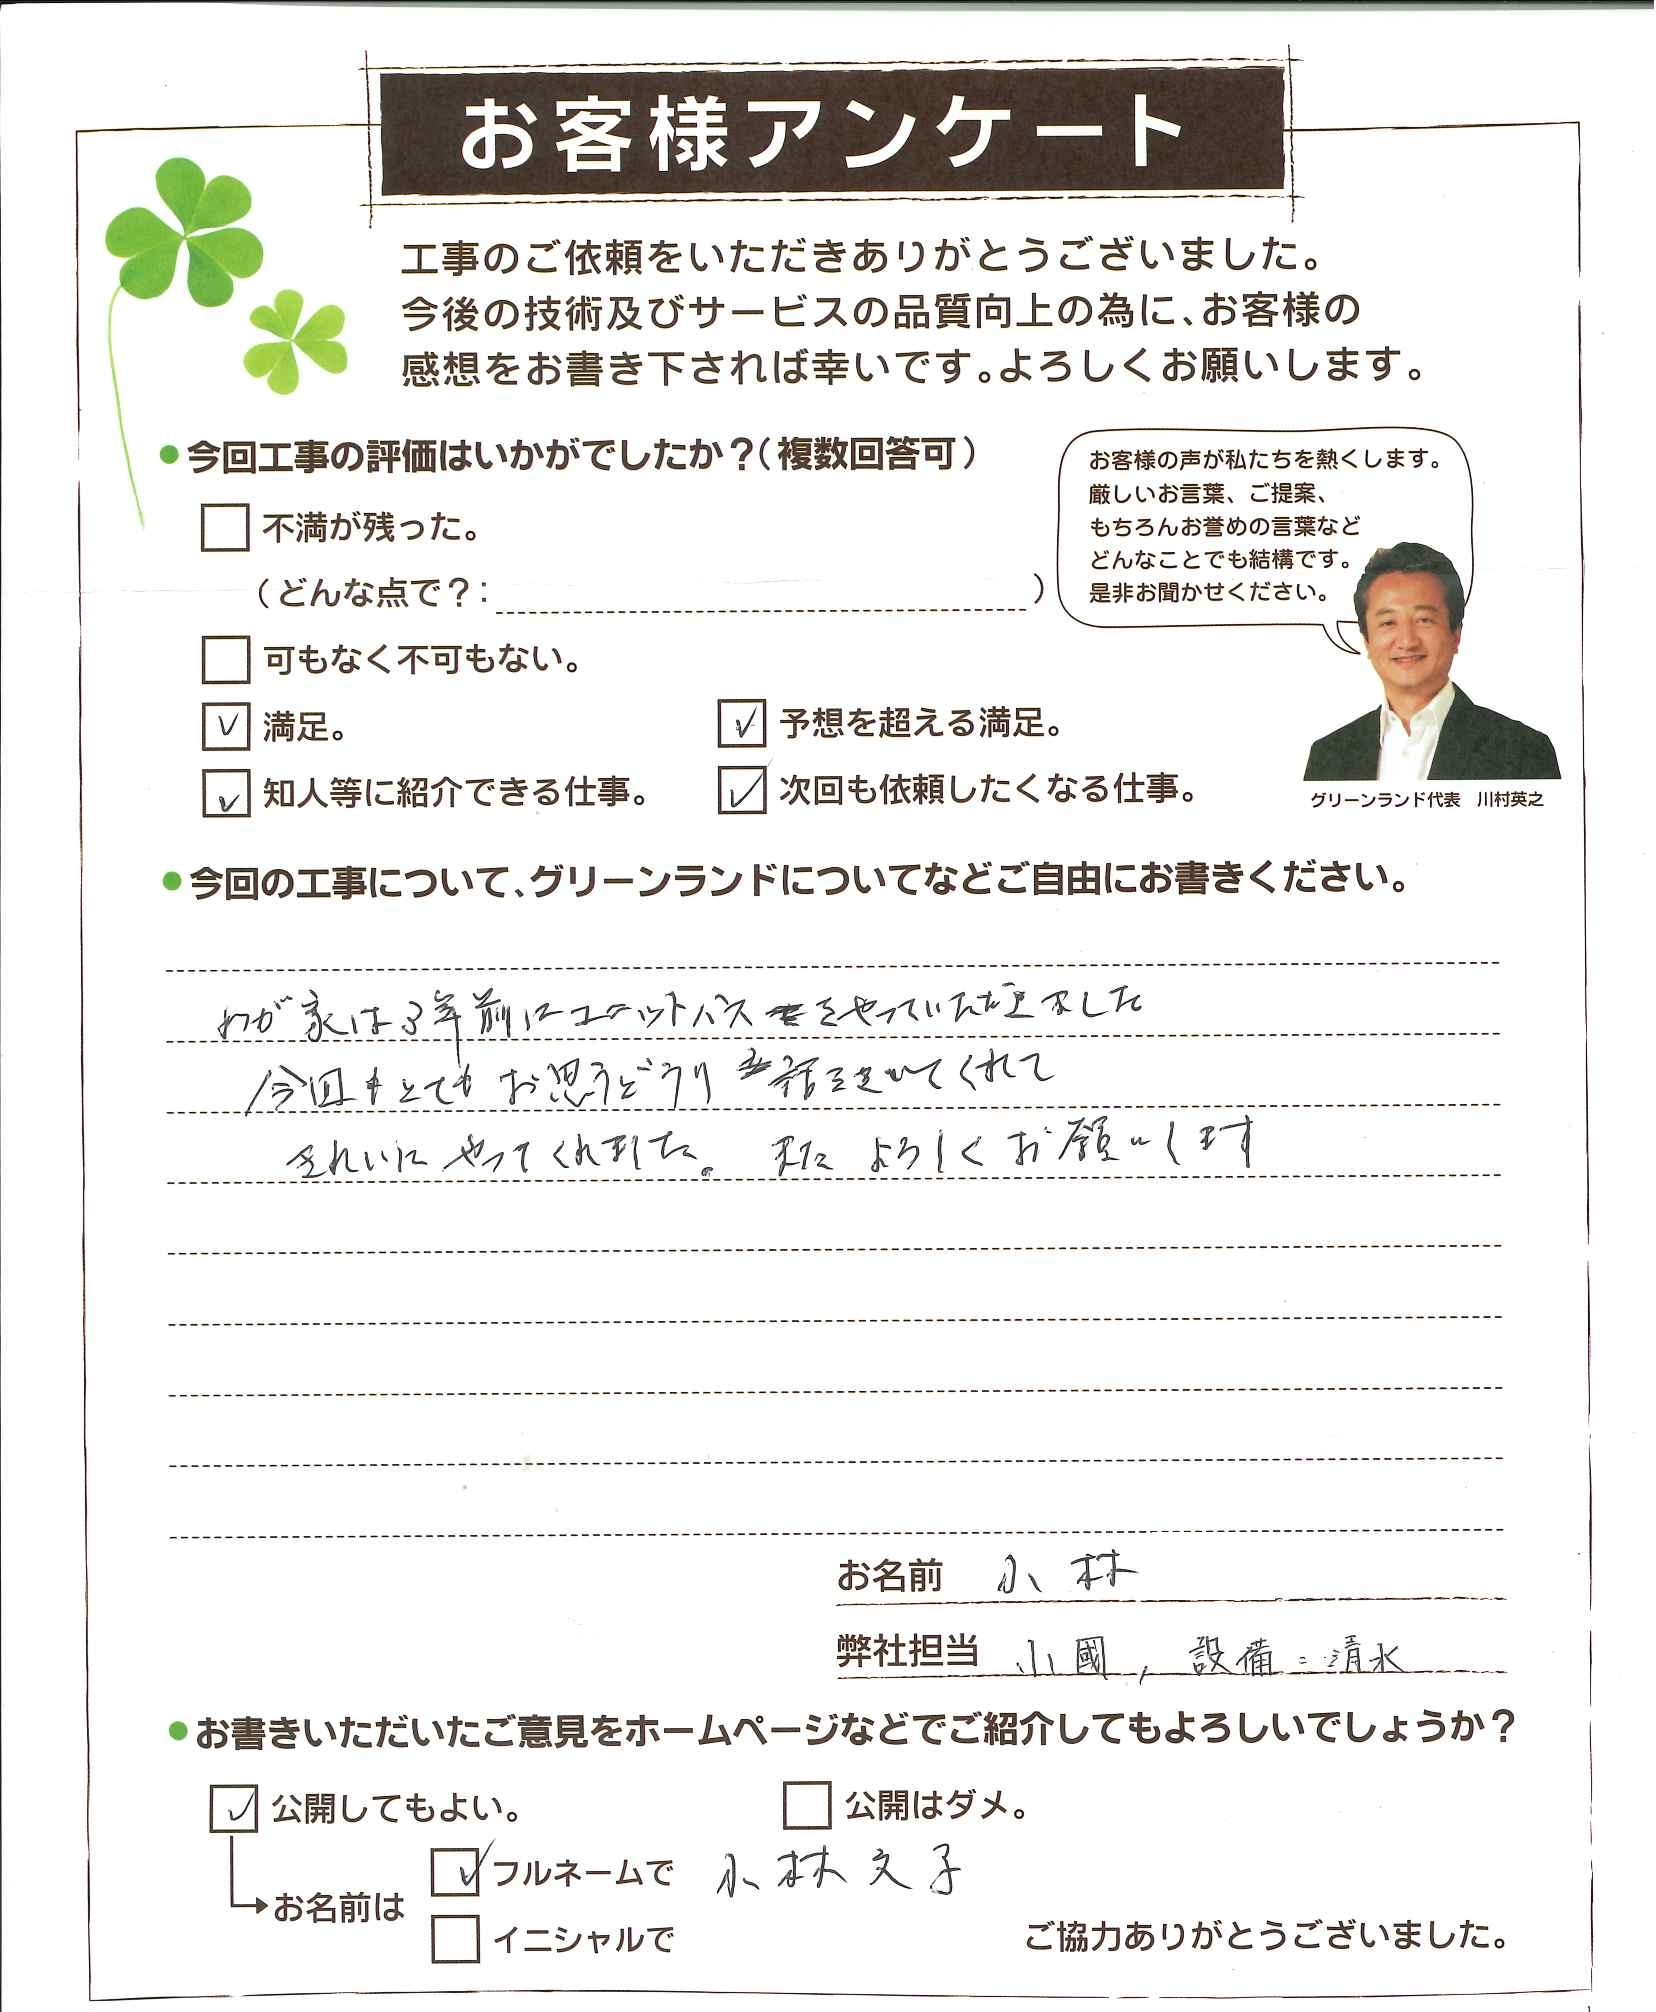 お客様アンケート
工事のご依頼をいただきありがとうございました。
今後の技術及びサービスの品質向上の為に、お客様の
感想をお書き下されば幸いです。よろしくお願いします。
●今回工事の評価はいかがでしたか?(複数回答可)
お客様の声が私たちを熱くします。
厳しいお言葉、ご提案、
もちろんお誉めの言葉など
どんなことでも結構です。
是非お聞かせください。
不満が残った。
(どんな点で?: )
可もなく不可もない。
満足。
予想を超える満足。
知人等に紹介できる仕事。
次回も依頼したくなる仕事。
グリーンランド代表 川村英之
●今回の工事について、グリーンランドについてなどご自由にお書きください。
わが家は3年前にユニットバスをやっていただきました
今回もとても お思うどうり 話をきいてくれて
きれいに やってくれました。 また よろしく お願いします
お名前 小林
弊社担当 小國, 設備:清水
●お書きいただいたご意見をホームページなどでご紹介してもよろしいでしょうか?
公開してもよい。
公開はダメ。
お名前は
フルネームで 小林文子
イニシャルで
ご協力ありがとうございました。